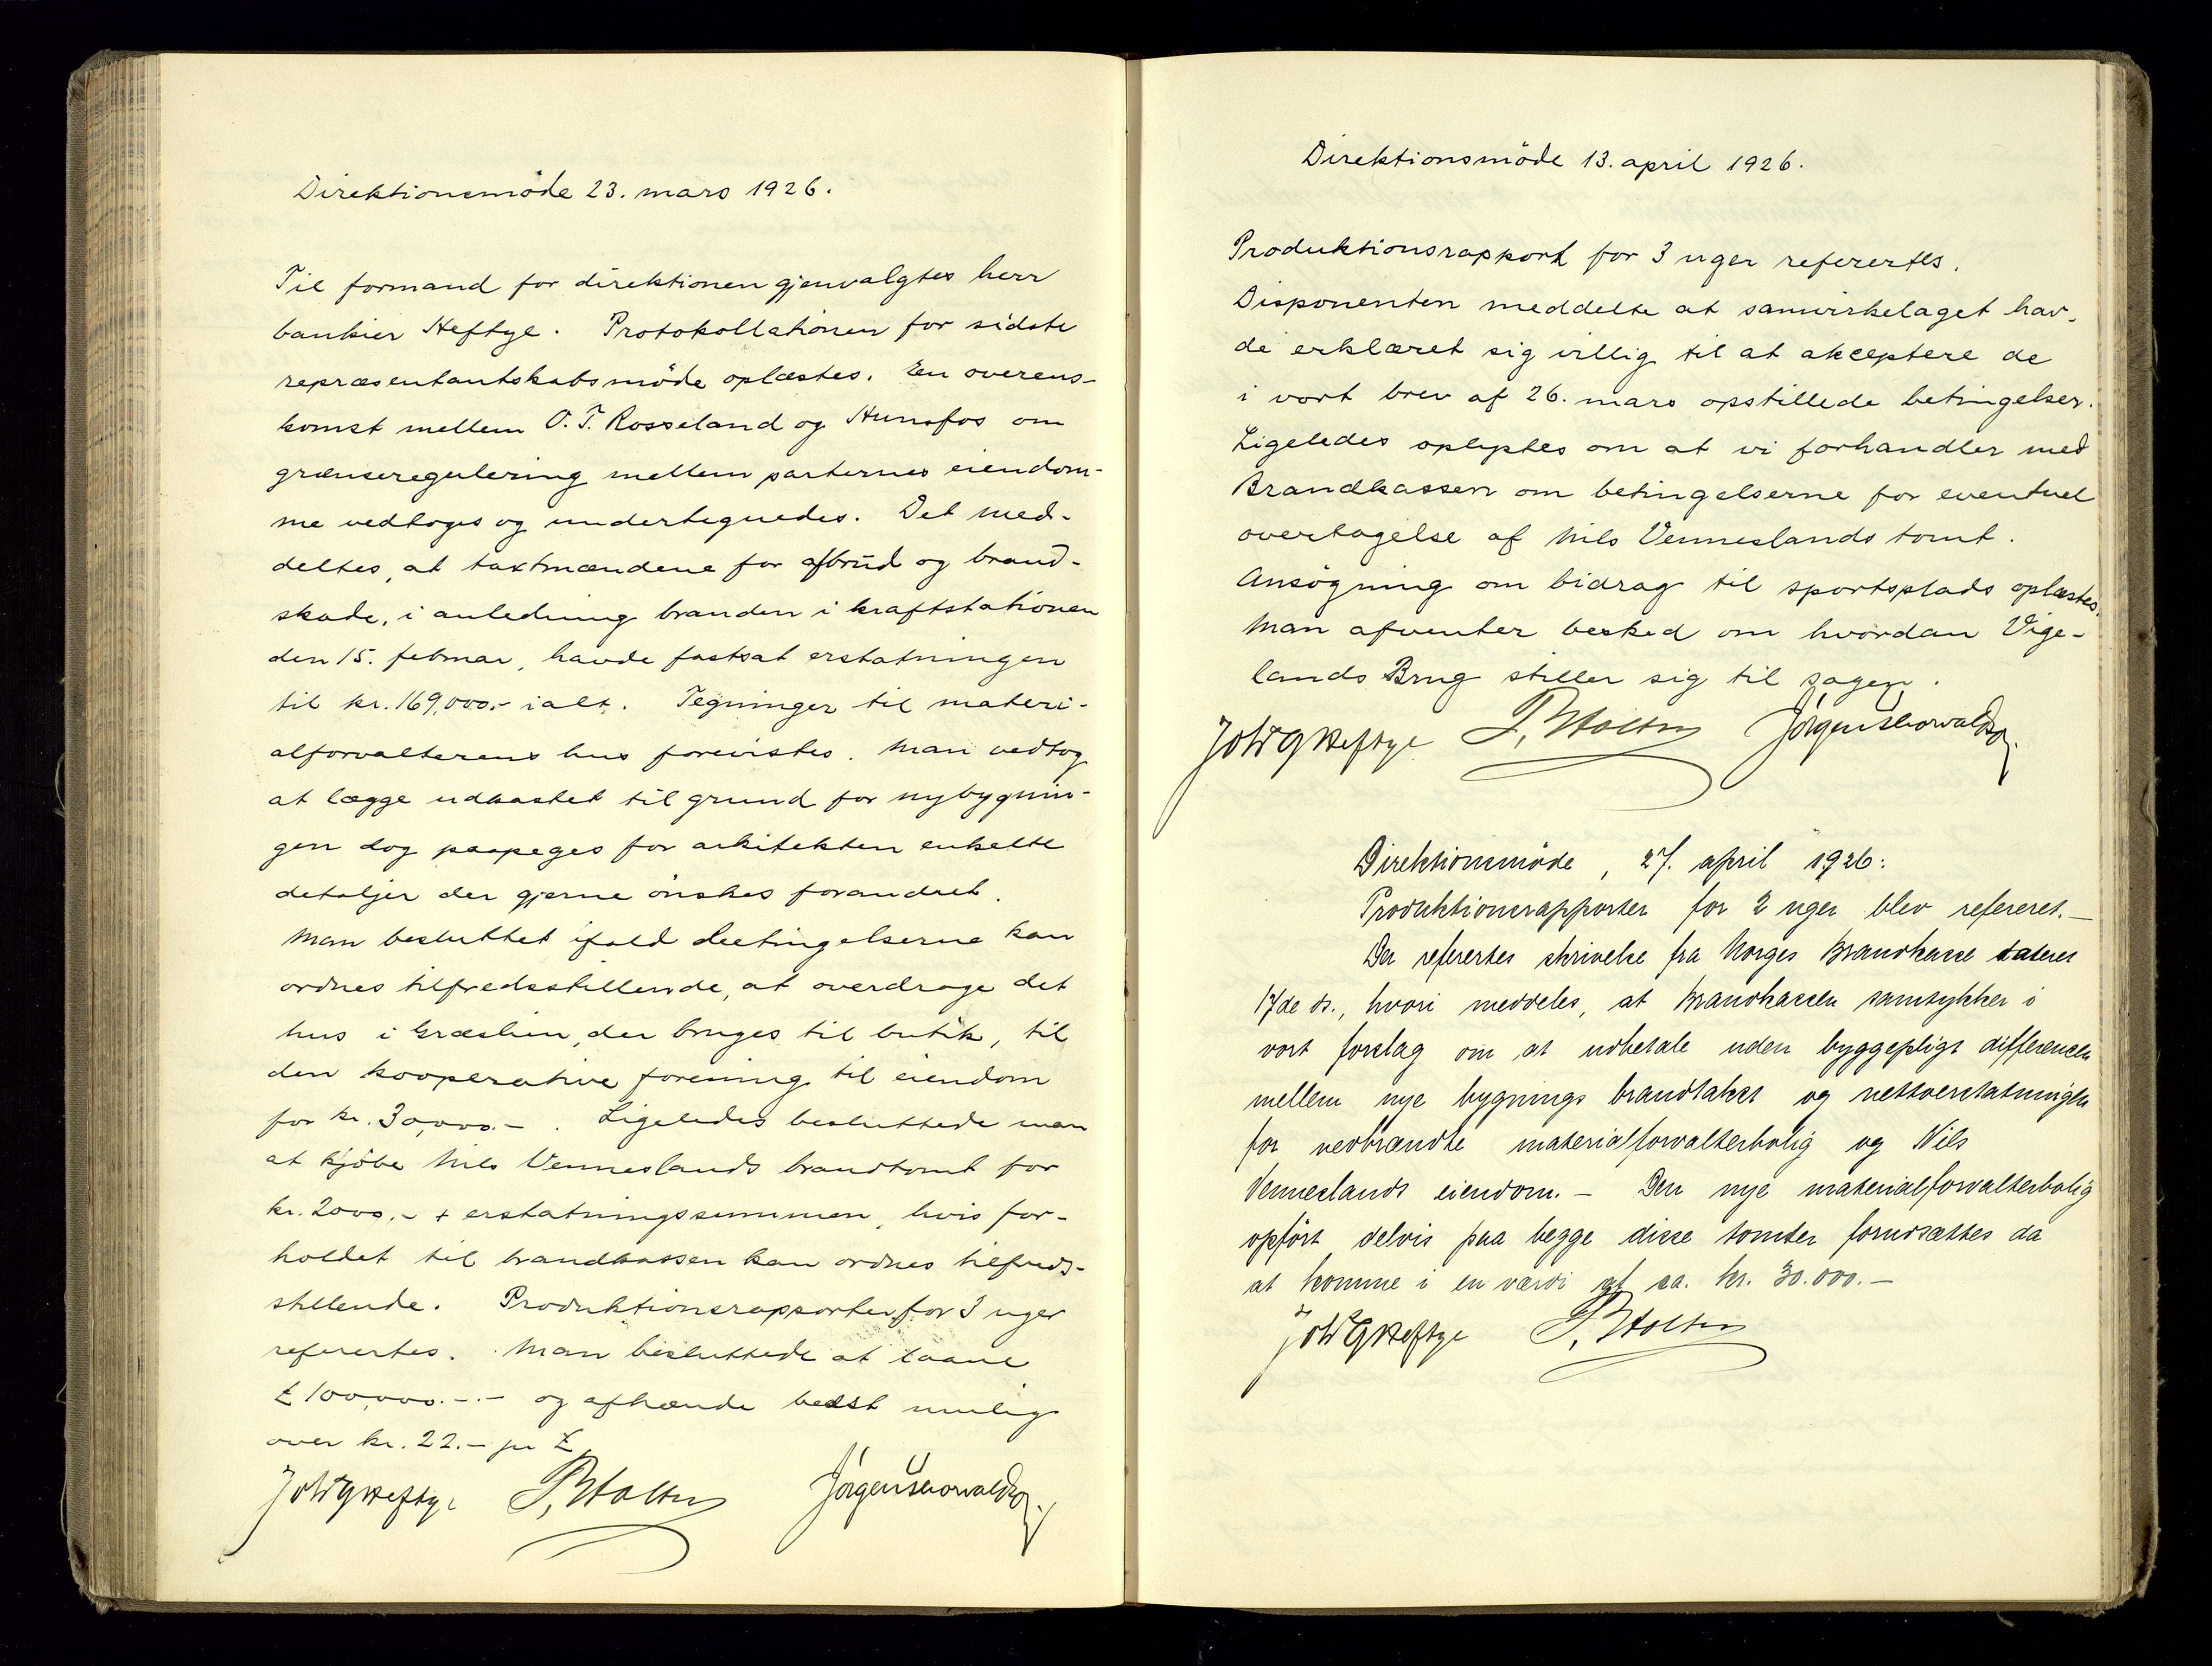 Direktionsmöde 23. mars 1926.
Til formand for direktionen gjenvalgtes herr
bankier Heftye. Protokollationen for sidste
repræsentantskabsmöde oplæstes. En overens-
komst mellem O. T. Rosseland og Hunsfos om
grænseregulering mellem parternes eiendom-
me vedtoges og undertegnedes. Det med-
deltes, at taxtmændene for afbrud og brand-
skade, i anledning branden i kraftstationen
den 15. februar, havde fastsat erstatningen
til kr. 169,000.- ialt. Tegninger til materi-
alforvalterens hus forevistes. Man vedtog
at lægge udkastet til grund for nybygnin-
gen dog paapeges for arkitekten enkelte
detaljer der gjerne önskes forandret.
Man besluttet ifald betingelserne kan
ordnes tilfredsstillende, at overdrage det
hus i Græslien, der bruges til butik, til
den kooperative forening til eiendom
for kr. 30,000.- . Ligeledes besluttede man
at kjöbe Nils Venneslands brandtomt for
kr. 2000.- + erstatningssummen, hvis for-
holdet til brandkassen kan ordnes tilfreds-
stillende. Produktionsrapporter for 3 uger
refertes. Man besluttede at laane
£ 100,000.-.- og afhænde bedst mulig
over kr. 22.- pr £
Joh G Heftye P. Holten Jörgen
Direktionsmöde 13. april 1926.
Produktionsrapport for 3 uger referertes.
Disponenten meddelte at samvirkelaget hav-
de erklæret sig villig til at akceptere de
i vort brev af 26. mars opstillede betingelser.
Ligeledes oplystes om at vi forhandler med
Brandkassen om betingelserne for eventuel
overtagelse af Nils Venneslands tomt.
Ansögning om bidrag til sportsplads oplæstes.
Man afventer besked om hvordan Vige-
lands Brug stiller sig til sagen.
Joh G Heftye P. Holten Jörgen
Direktionsmöde, 27. april 1926:
Produktionsrapporter for 2 uger blev refereret.-
Der refertes skrivelse fra Norges Brandkasse dateret
17de ds., hvori meddeles, at Brandkassen samtykker i
vort forslag om at udbetale uden byggepligt differencen
mellem nye bygnings brandtakst og nettoerstatningen
for nedbrændte materialforvalterbolig og Nils
Venneslands eiendom. - Den nye materialforvalterbolig
opfört delvis paa begge disse tomter forudsættes da
at komme i en værdi af ca. kr. 30.000.-
Joh G Heftye P. Holten